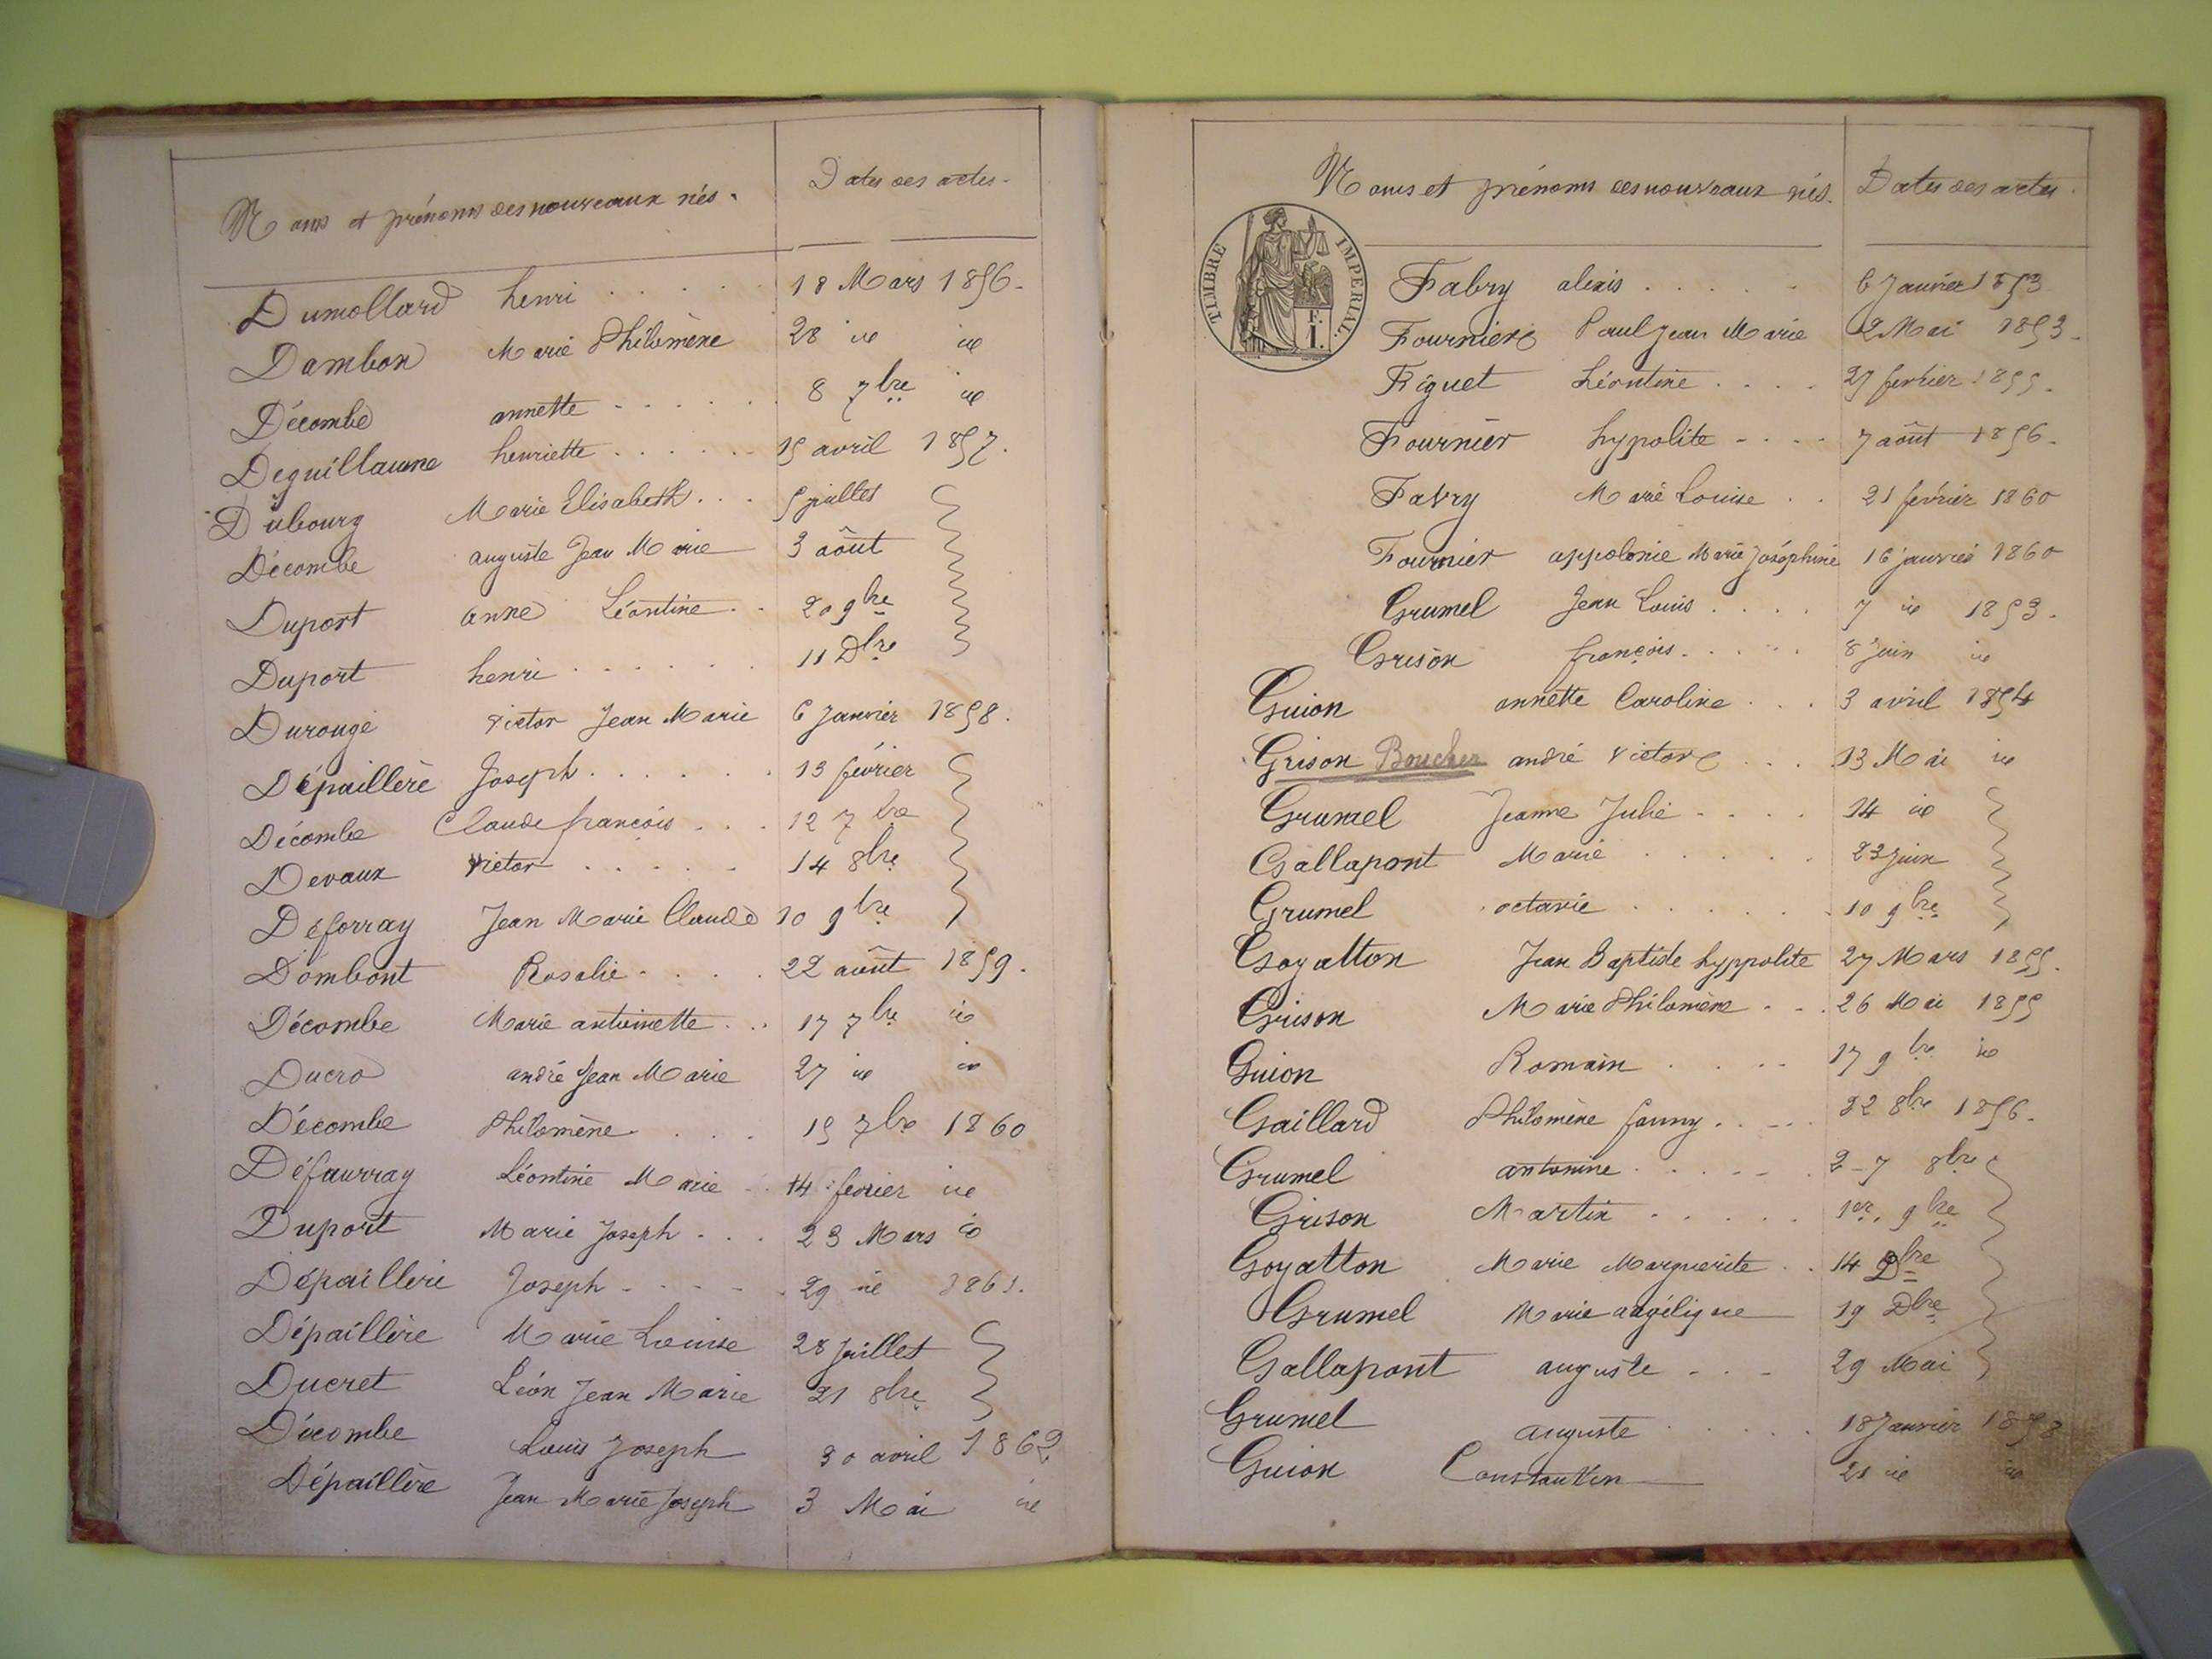 Noms et prénoms des nouveaux nés. Dates des actes.
Dumollard henri 18 Mars 1856.
Dambon Marie Philomène 28 id id
Décombe annette 8 7bre id
Deguillaume henriette 15 avril 1857.
Dubourg Marie Elisabeth 5 juillet
Décombe auguste Jean Marie 3 août
Duport anne Léontine 20 9bre
Duport henri 11 Dbre
Durouge victor Jean Marie 6 Janvier 1858.
Dépaillère Joseph 13 février
Décombe Claude françois 12 7bre
Devaux victor 14 8bre
Déforray Jean Marie Claude 10 9bre
Dombont Rosalie 22 août 1859.
Décombe Marie antoinette 17 7bre id
Ducro andré Jean Marie 27 id id
Décombe Philomène 15 7bre 1860
Défaurray Léontine Marie 14 février id
Duport Marie Joseph 23 Mars id
Dépaillère Joseph 29 id 1861.
Dépaillère Marie Louise 28 Juillet
Ducret Léon Jean Marie 21 8bre
Décombe Louis Joseph 30 avril 1862
Dépaillère Jean Marie Joseph 3 Mai id
Noms et prénoms des nouveaux nés. Dates des actes.
TIMBRE IMPERIAL.
F.
I.
Fabry alexis 6 Janvier 1853
Fournier Paul Jean Marie 2 Mai 1853.
Figuet Léontine 27 fevrier 1855.
Fournier hypolite 7 août 1856.
Fabry Marie Louise 21 février 1860
Fournier appolonie Marie Joséphine 16 janvier 1860
Grumel Jean Louis 7 id 1853.
Grison françois 8 juin id
Guion annette Caroline 3 avril 1854
Grison Boucher andré victor 13 Mai id
Grumel Jeanne Julie 14 id
Gallapont Marie 23 juin
Grumel octavie 10 9bre
Goyatton Jean Baptiste hyppolite 27 Mars 1855.
Grison Marie Philomène 26 Mai 1855
Guion Romain 17 9bre id
Gaillard Philomène fanny 22 8bre 1856.
Grumel antonine 27 8bre
Grison Martin 1er. 9bre
Goyatton Marie Marguerite 14 Dbre
Grumel Marie angélique 19 Dbre
Gallapont auguste 29 Mai
Grumel auguste 18 Janvier 1858
Guion Constantin 21 id id